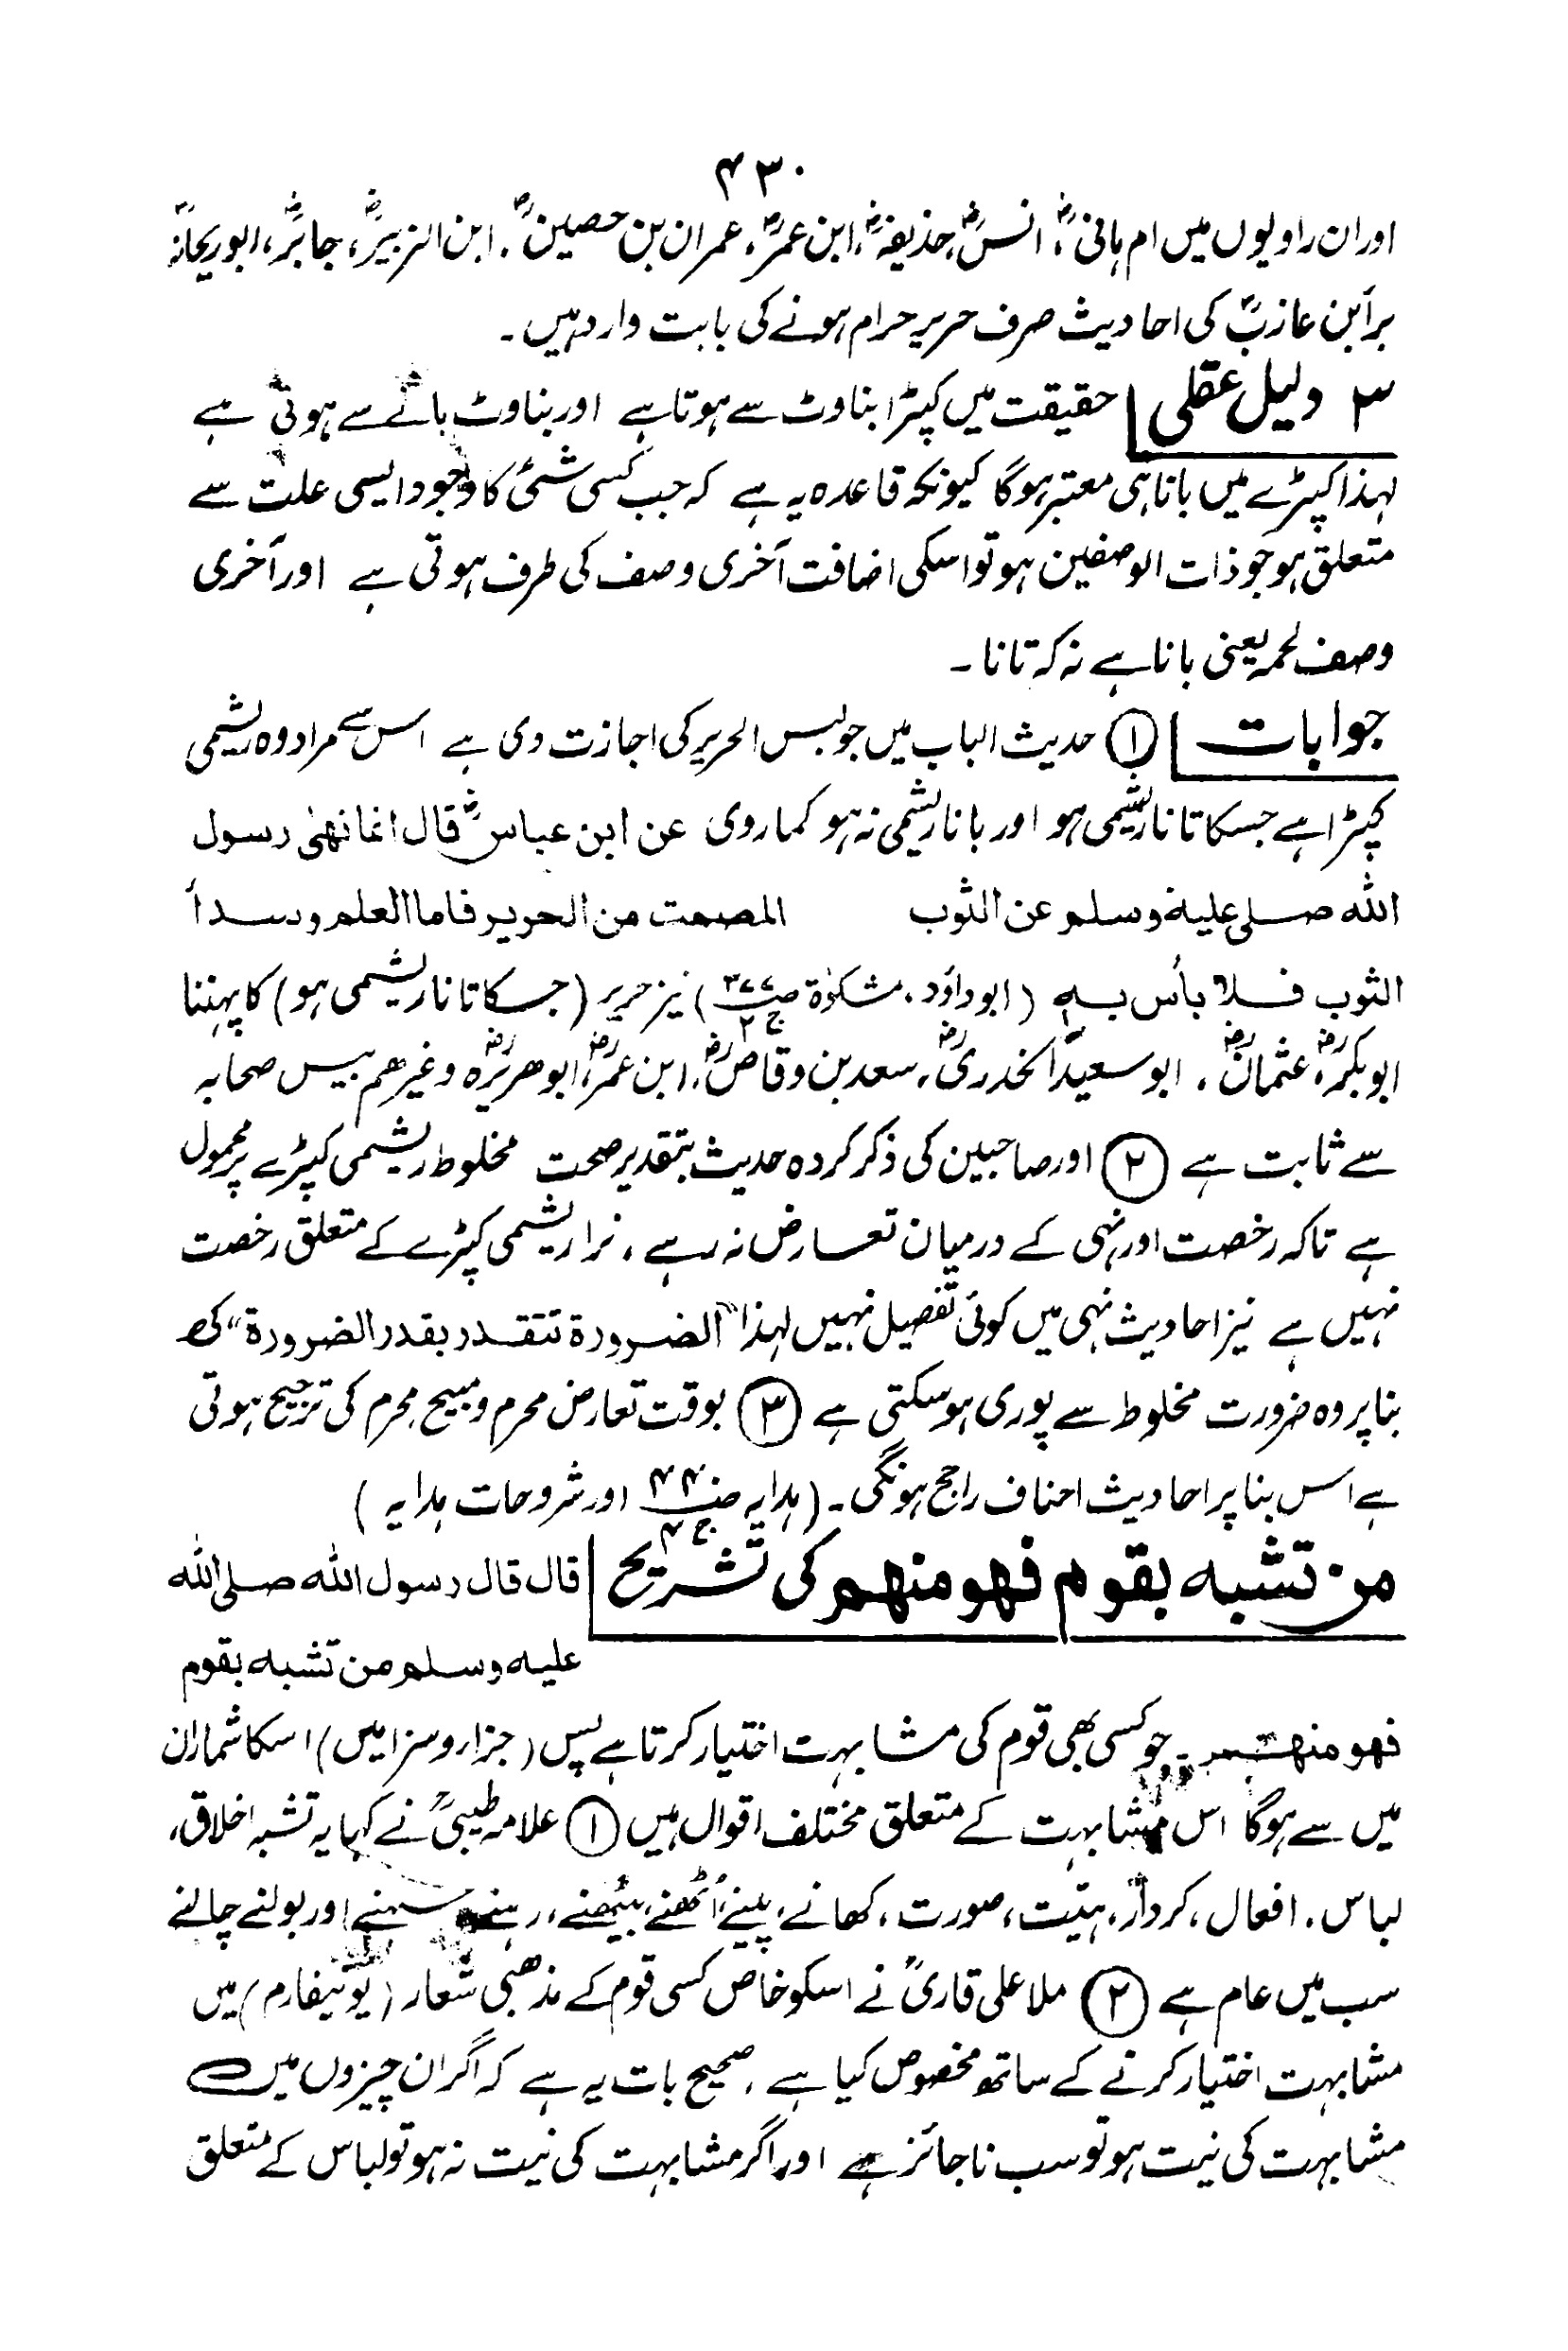 ۴۳۰
اور ان راویوں میں ام ہانیؓ، انسؓ، حذیفہؓ، ابن عمرؓ، عمران بن حصینؓ، ابن الزبیرؓ، جابرؓ، ابوریحانہؓ
برأ بن عازبؓ کی احادیث صرف حریر حرام ہونے کی بابت وارد ہیں۔
۳ دلیل عقلی حقیقت میں کپڑا بناوٹ سے ہوتا ہے اور بناوٹ بانے سے ہوتی ہے
لہذا کپڑے میں بانا ہی معتبر ہوگا کیونکہ قاعدہ یہ ہے کہ جب کسی شئ کا وجود ایسی علت سے
متعلق ہو جو ذات الوصفین ہو تو اسکی اضافت آخری وصف کی طرف ہوتی ہے اور آخری
وصف لحمہ یعنی بانا ہے نہ کہ تانا۔
جوابات ① حدیث الباب میں جو لبس الحریر کی اجازت دی ہے اس سے مراد وہ ریشمی
کپڑا ہے جسکا تانا ریشمی ہو اور بانا ریشمی نہ ہو کما روی عن ابن عباسؓ قال انما نھیٰ رسول
اللہ صلی علیہ وسلم عن الثوب المصمت من الحریر فاما العلم وسدأ
الثوب فلا بأس بہٖ (ابو داؤد، مشکوٰۃ صـ۳۷۷ ج۲) نیز حریر (جسکا تانا ریشمی ہو) کا پہننا
ابوبکرؓ، عثمانؓ، ابو سعید الخدریؓ، سعد بن وقاصؓ، ابن عمرؓ، ابو ھریرہؓ وغیرھم بیس صحابہ
سے ثابت ہے ② اور صاحبین کی ذکر کردہ حدیث بتقدیر صحت مخلوط ریشمی کپڑے پر محمول
ہے تاکہ رخصت اور نہی کے درمیان تعارض نہ رہے، نرا ریشمی کپڑے کے متعلق رخصت
نہیں ہے نیز احادیث نہی میں کوئی تفصیل نہیں لہذا "الضرورۃ تتقدر بقدر الضرورۃ" کی
بنا پر وہ ضرورت مخلوط سے پوری ہو سکتی ہے ③ بوقت تعارض محرم و مبیح محرم کی ترجیح ہوتی
ہے اس بنا پر احادیث احناف راجح ہونگی۔ (ہدایہ صـ۴۴ ج۴ اور شروحات ہدایہ)
من تشبہ بقوم فھو منھم کی تشریح قال قال رسول اللہ صلی اللہ
علیہ وسلم من تشبہ بقوم
فھو منھم۔ جو کسی بھی قوم کی مشابہت اختیار کرتا ہے پس (جزار و سزا میں) اسکا شمار ان
میں سے ہوگا اس مشابہت کے متعلق مختلف اقوال ہیں ① علامہ طیبیؒ نے کہا یہ تشبہ اخلاق،
لباس، افعال، کردار، ہیئت، صورت، کھانے، پینے، اُٹھنے، بیٹھنے، رہنے سہنے اور بولنے چالنے
سب میں عام ہے ② ملا علی قاریؒ نے اسکو خاص کسی قوم کے مذھبی شعار (یونیفارم) میں
مشابہت اختیار کرنے کے ساتھ مخصوص کیا ہے، صحیح بات یہ ہے کہ اگر ان چیزوں میں
مشابہت کی نیت ہو تو سب ناجائز ہے اور اگر مشابہت کی نیت نہ ہو تو لباس کے متعلق